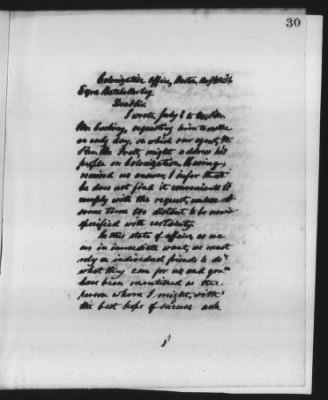 30
Colonization Office, Boston
Ezra Batcheller Esq
I wrote July 8 to the Rev
Mr Cushing, requesting him to name
an early day, on which our agent, the
Rev. Mr Foote, might address his
people on Colonization. Having
received no answer, I infer that
he does not find it convenient to
comply with the request, unless at
some time too distant to be now
specified with certainty.
In this state of affairs, as we
are in immediate want, we must
rely on individual friends to do
what they can for us and you
have been mentioned as the
person whom I might, with
the best hope of success ask